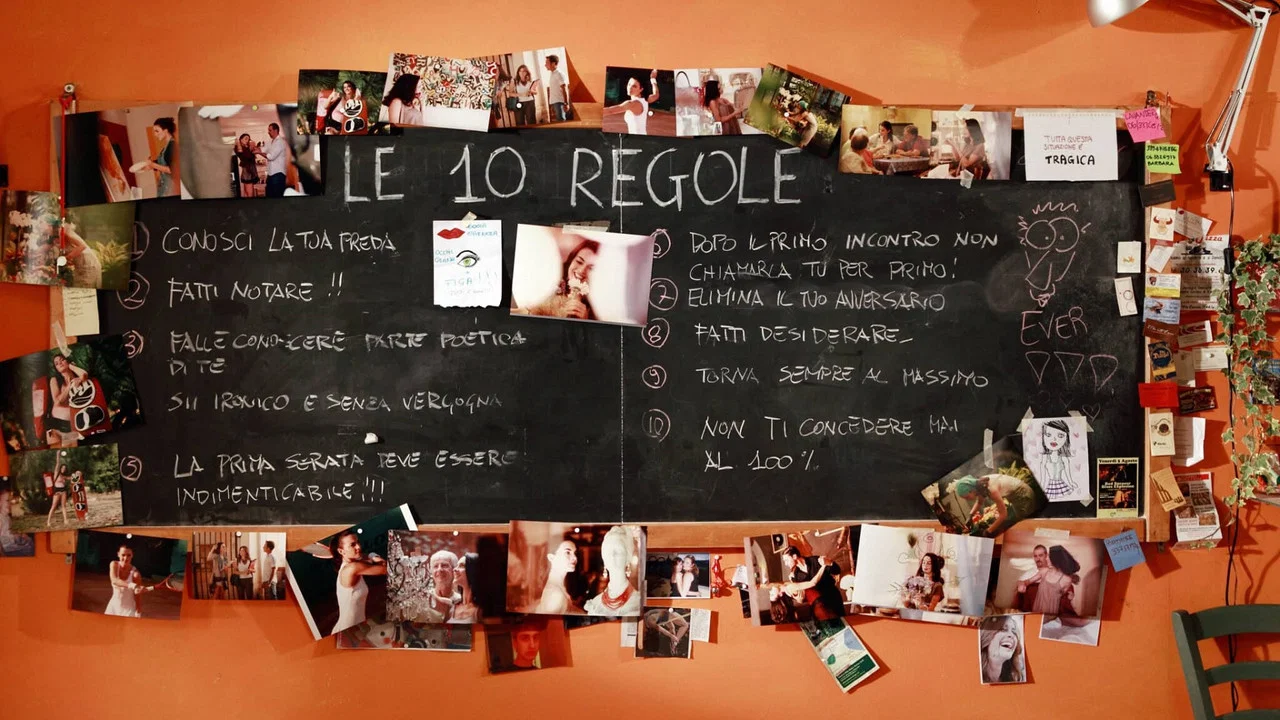 LE 10 REGOLE
1 CONOSCI LA TUA PREDA
2 FATTI NOTARE !!
3 FALLE CONOSCERE PARTE POETICA
DI TE
SII IRONICO E SENZA VERGOGNA
5 LA PRIMA SERATA DEVE ESSERE
INDIMENTICABILE!!!
DOPO IL PRIMO INCONTRO NON
CHIAMARLA TU PER PRIMO!
7 ELIMINA IL TUO AVVERSARIO
8 FATTI DESIDERARE
9 TORNA SEMPRE AL MASSIMO
10 NON TI CONCEDERE MAI
AL 100%
EVER
FIGA!!!
TUTTA QUESTA
SITUAZIONE È
TRAGICA
BARBARA